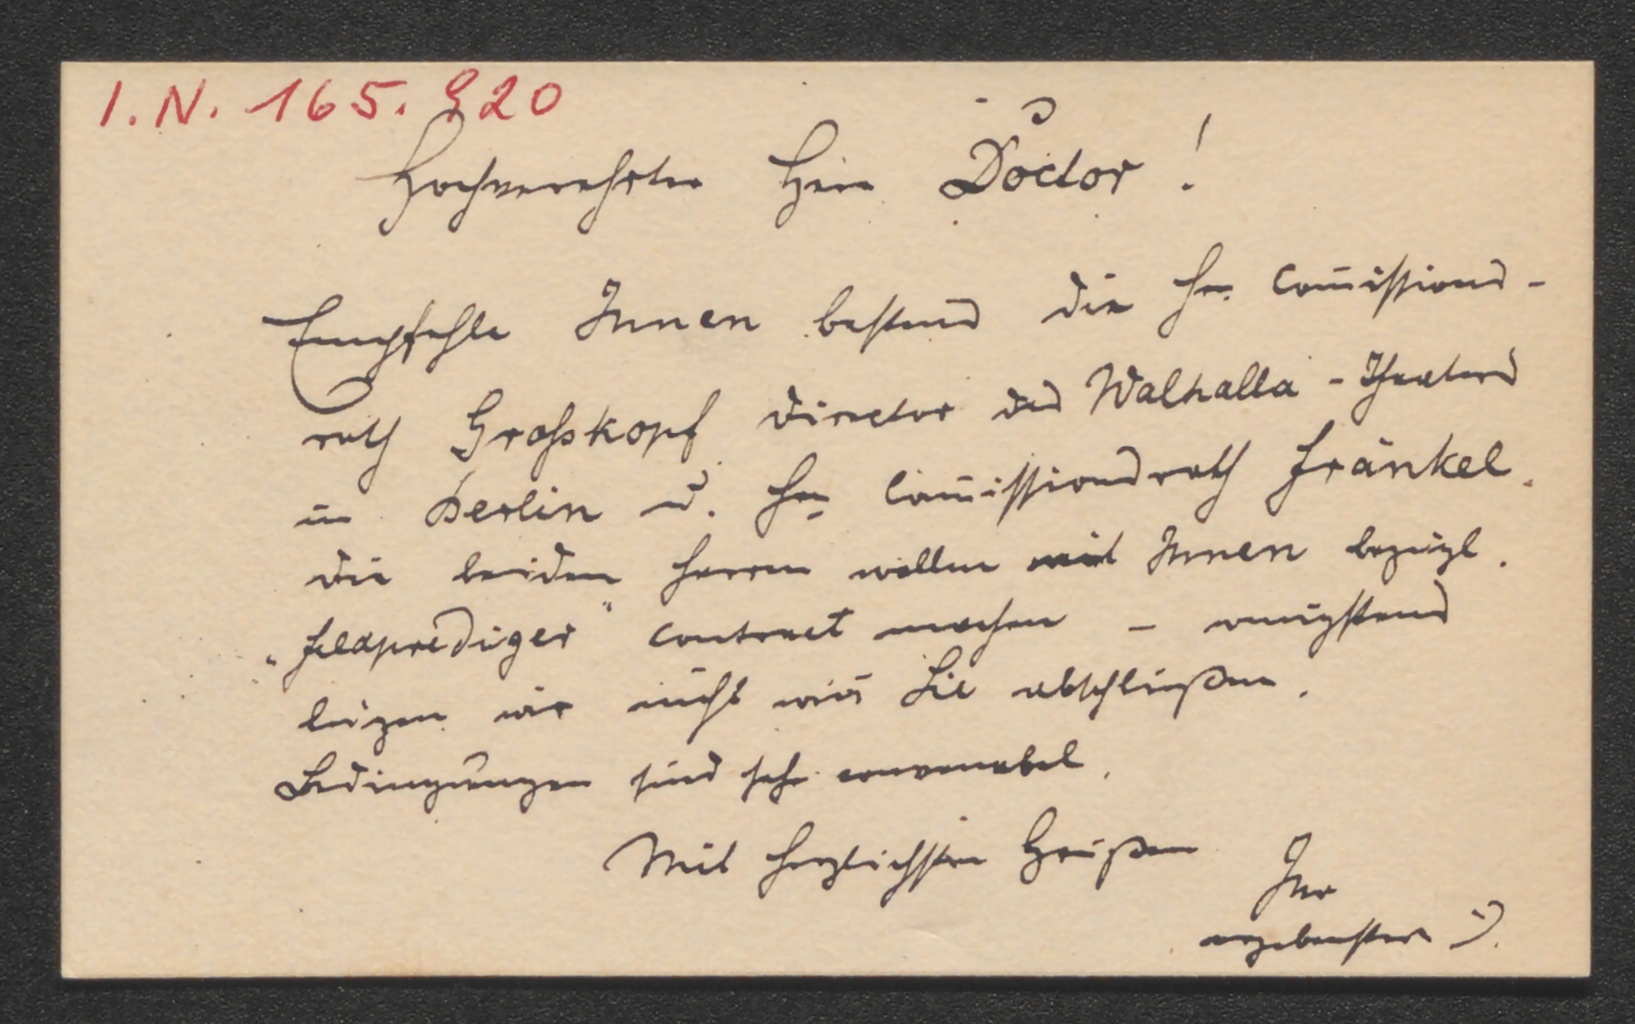 I.N. 165.920
Hochverehrter Herr Doctor!
Empfehle Ihnen bestens die Hrn. Com̄issions-
rath Großkopf Director des Walhalla-Theaters
in Berlin u. Hrn Com̄issionsrath Fränkel.
Die beiden Herren wollen mit Ihnen bezügl.
„Feldprediger" Contract machen – wenigstens
wir nicht Sie abschließen.
Bedingungen sind sehr convenabel.
Mit herzlichsten Grüßen
Ihr
ergebenster